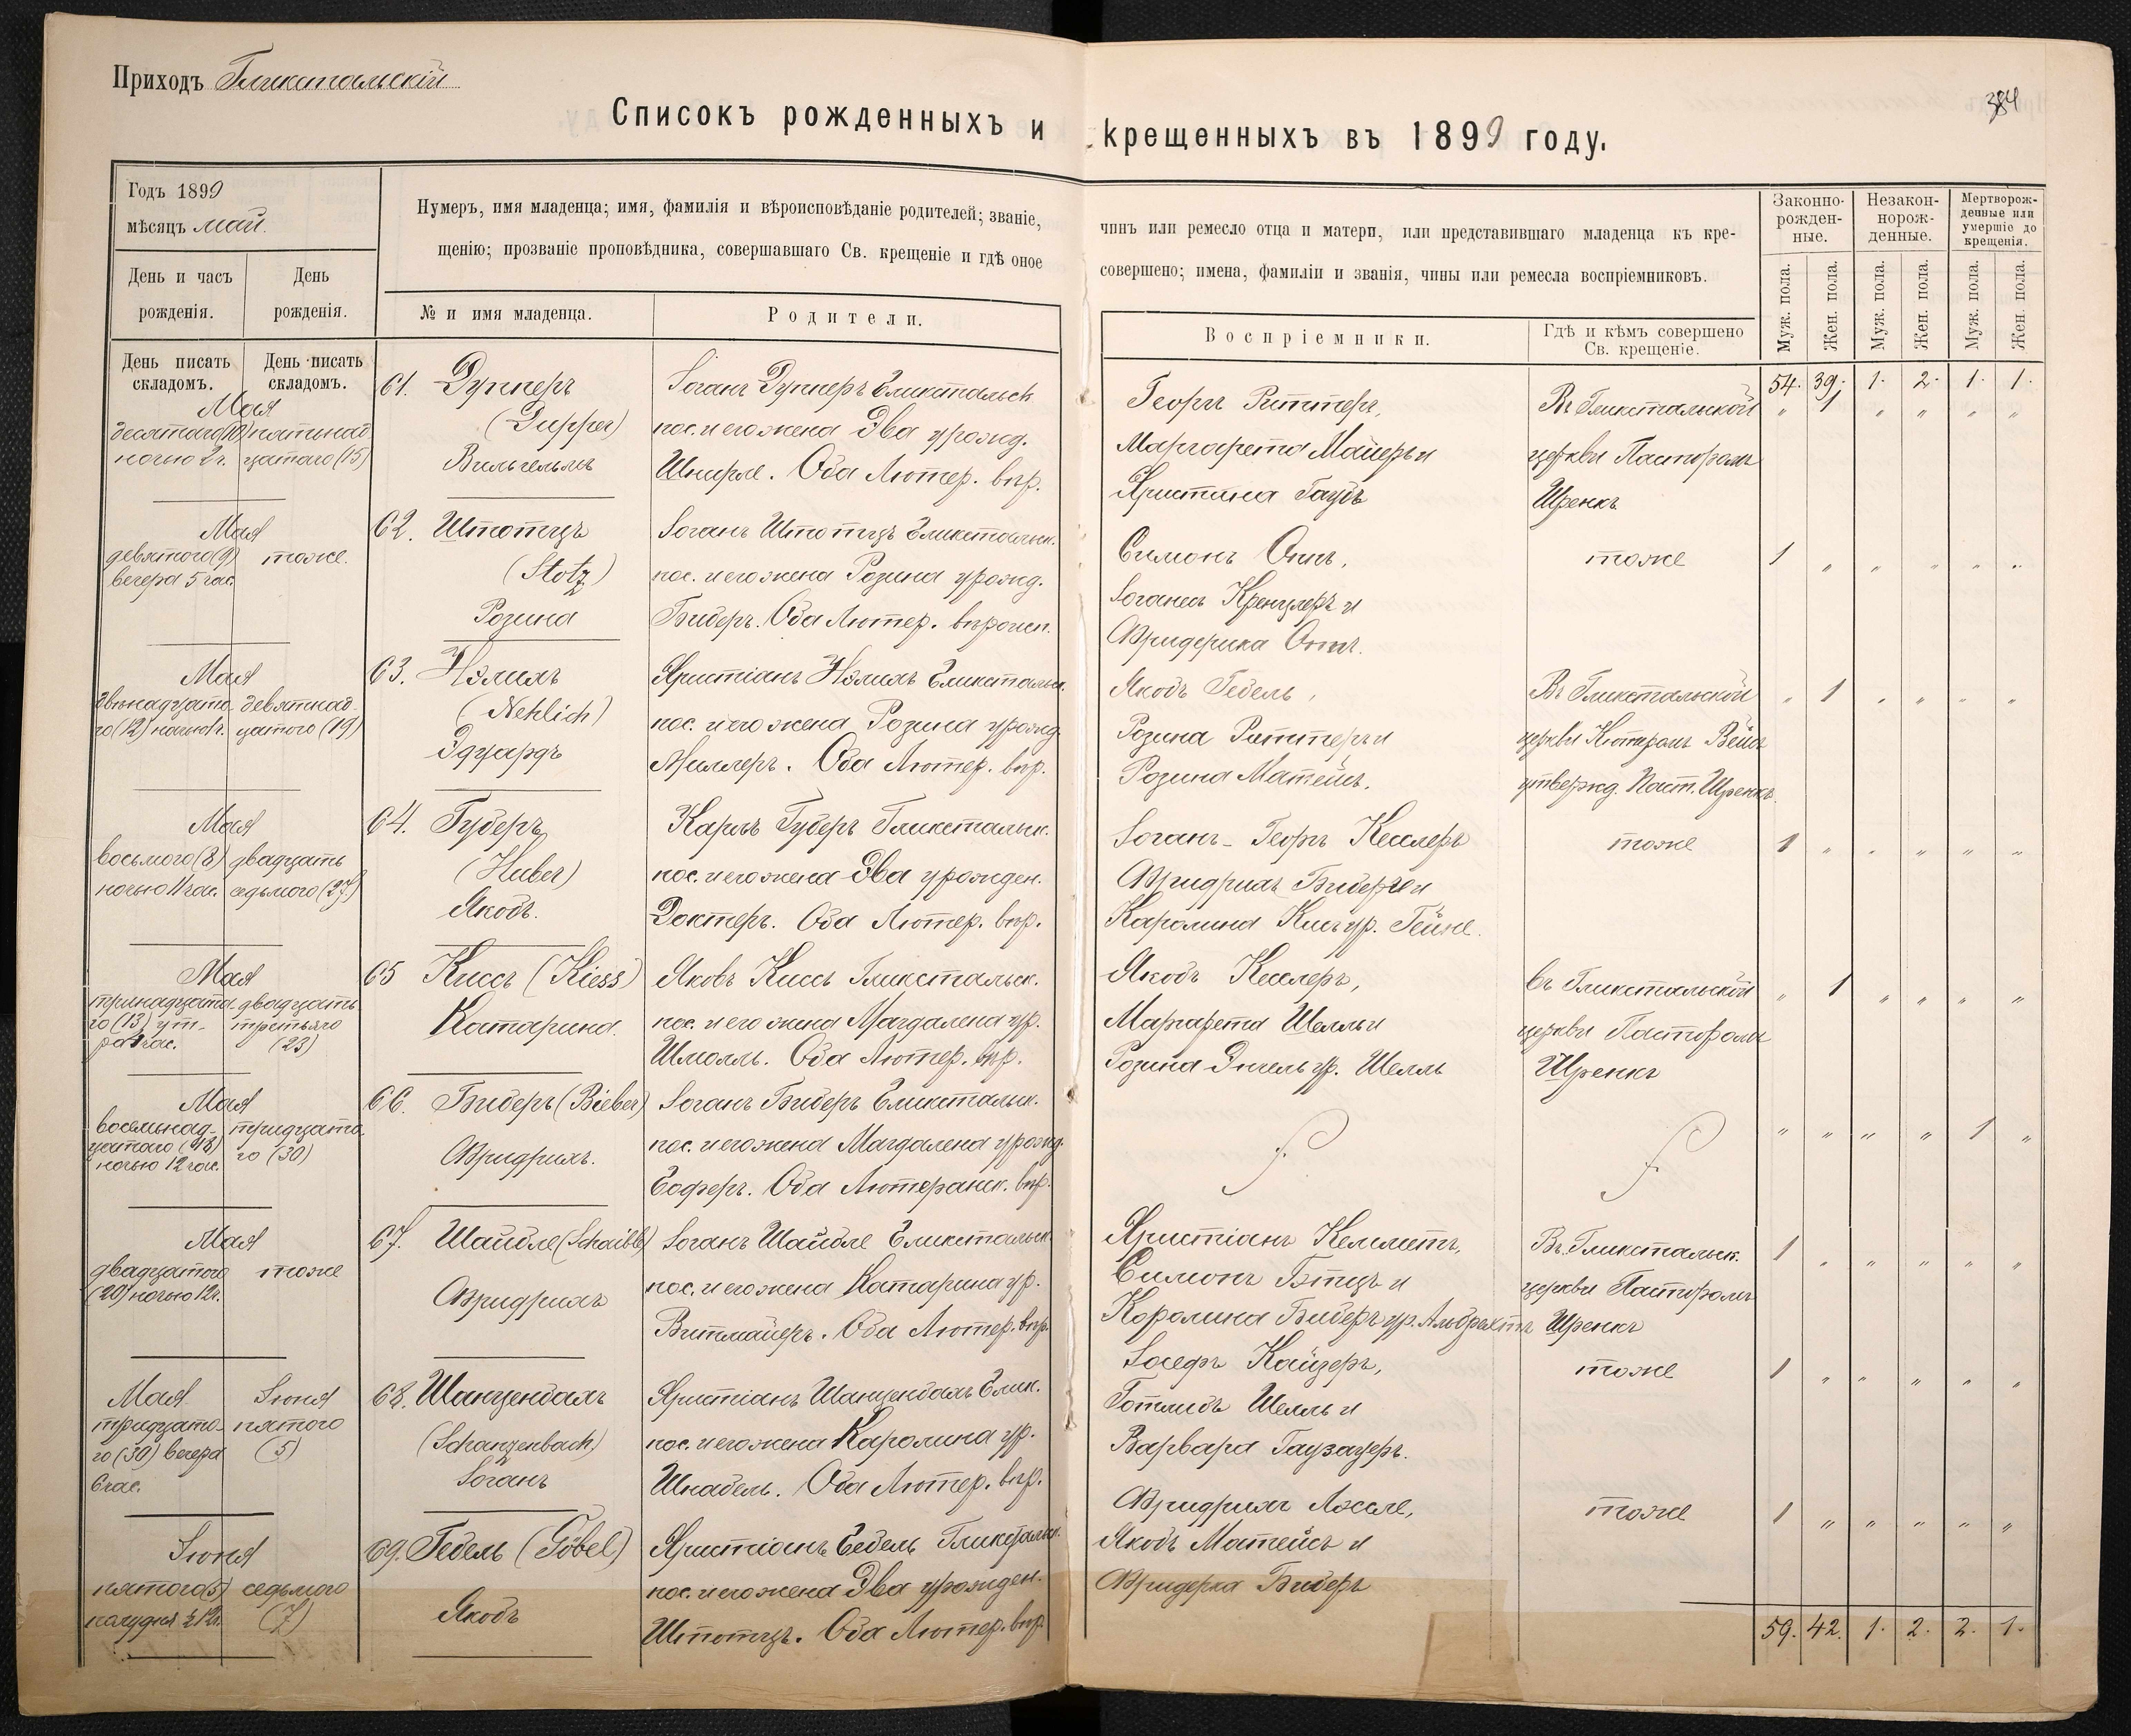 Приходъ Гликстальскій
384
Списокъ рожденныхъ и крещенныхъ въ 1899 году.
Годъ 1899
мѣсяцъ май.
День и часъ рожденія.
День рожденія.
Нумеръ, имя младенца; имя, фамилія и вѣроисповѣданіе родителей; званіе, чинъ или ремесло отца и матери, или представившаго младенца къ кре-
щенію; прозваніе проповѣдника, совершавшаго Св. крещеніе и гдѣ оное совершено; имена, фамиліи и званія, чины или ремесла воспріемниковъ.
№ и имя младенца.
Родители.
Воспріемники.
Гдѣ и кѣмъ совершено
Св. крещеніе.
Законно-
рожден-
ные.
Незакон-
норож-
денные.
Мертворож-
денные или
умершіе до
крещенія.
Муж. пола.
Жен. пола.
Муж. пола.
Жен. пола.
Муж. пола.
Жен. пола.
День писать
складомъ.
День писать
складомъ.
54. 39. 1. 2. 1. 1.
Мая
десятаго (10)
ночью 2 г.
пятнад
цатаго (15)
61. Дупперъ
(Dupper)
Вильгельмъ
Іоганъ Дупперъ Гликстальск
пос. и его жена Эва урожд.
Шнирле. Оба Лютер. вѣр.
Георгъ Риттеръ,
Маргарета Майеръ и
Христина Гаубъ
Въ Гликсталькой
церкви Пасторомъ
Шренкъ
" 1 " " " "
Мая
девятого (9)
вечера 5 час.
тоже.
62. Штотцъ
(Stotz)
Розина
Іоганъ Штотцъ Гликстальск.
пос. и его жена Розина урожд.
Биберъ. Оба Лютер. вѣроисп.
Симонъ Оттъ,
Іоганесъ Кренцлеръ и
Фридерика Оттъ.
тоже
1 " " " " "
Мая
двѣнадцато-
го (12) ночью 1 г.
девятнад-
цатого (19)
63. Нэлихъ
(Nehlich)
Эдуардъ
Христіанъ Нэлихъ Гликстальск.
пос. и его жена Розина урожд.
Миллеръ. Оба Лютер. вѣр.
Якобъ Гебель,
Розина Риттеръ и
Розина Матейсъ.
Въ Гликстальской
церкви Кюстромъ Вейсъ
утвержд. Паст. Шренкъ.
" 1 " " " "
Мая
восьмого (8)
ночью 11 час.
двадцать
седьмого (27)
64. Губеръ
(Huber)
Якобъ.
Карлъ Губеръ Гликстальск.
пос. и его жена Эва урожден.
Доктеръ. Оба Лютер. вѣр.
Іоганъ-Георгъ Кесслеръ
Фридрихъ Биберъ и
Каролина Кисъ ур. Гейне.
тоже
1 " " " " "
Мая
тринадцато-
го (13) ут-
ра час.
двадцать
третьяго
(23)
65 Киссъ (Kiess)
Катарина.
Яковъ Киссъ Гликстальск.
пос. и его жена Магдалена ур.
Шмолль. Оба Лютер. вѣр.
Якобъ Кесслеръ,
Маргарета Шелль и
Розина Энгель ур. Шелль
Въ Гликстальской
церкви Пасторомъ
Шренкъ
" 1 " " " "
Мая
восемнад-
цатаго (18)
ночью 12 час.
тридцато-
го (30)
66. Биберъ (Bieber)
Фридрихъ.
Іоганъ Биберъ Гликстальск.
пос. и его жена Магдалена урожд.
Гоферъ. Оба Лютеранск. вѣр.
" " " " 1 "
Мая
двадцатого
(20) ночью 12 г.
тоже
67. Шайбле (Schaible)
Фридрихъ
Іоганъ Шайбле Гликстальск
пос. и его жена Катарина ур.
Витмайеръ. Оба Лютер. вѣр.
Христіанъ Кемлетъ,
Симонъ Гэтцъ и
Каролина Биберъ ур. Альбрехтъ
Въ Гликстальск.
церкви Пасторомъ
Шренкъ
1 " " " " "
Мая
тридцато-
го (30) вечера
6 час.
Іюня
пятого
(5)
68. Шанценбахъ
(Schanzenbach)
Іоганъ
Христіанъ Шанценбахъ Глик.
пос. и его жена Каролина ур.
Шнабель. Оба Лютер. вѣр.
Іосефъ Кайзеръ,
Готлибъ Шелль и
Варвара Гаузауеръ.
тоже
1 " " " " "
Іюня
пятого (5)
полудня ½ 12 г.
седьмого
(7)
69. Гебель (Göbel)
Якобъ
Христіанъ Гебель Гликстальск.
пос. и его жена Эва урожден.
Штотцъ. Оба Лютер. вѣр.
Фридрихъ
Якобъ Матейсъ и
Фридерка Биберъ
тоже
1 " " " " "
59. 42. 1. 2. 2. 1.